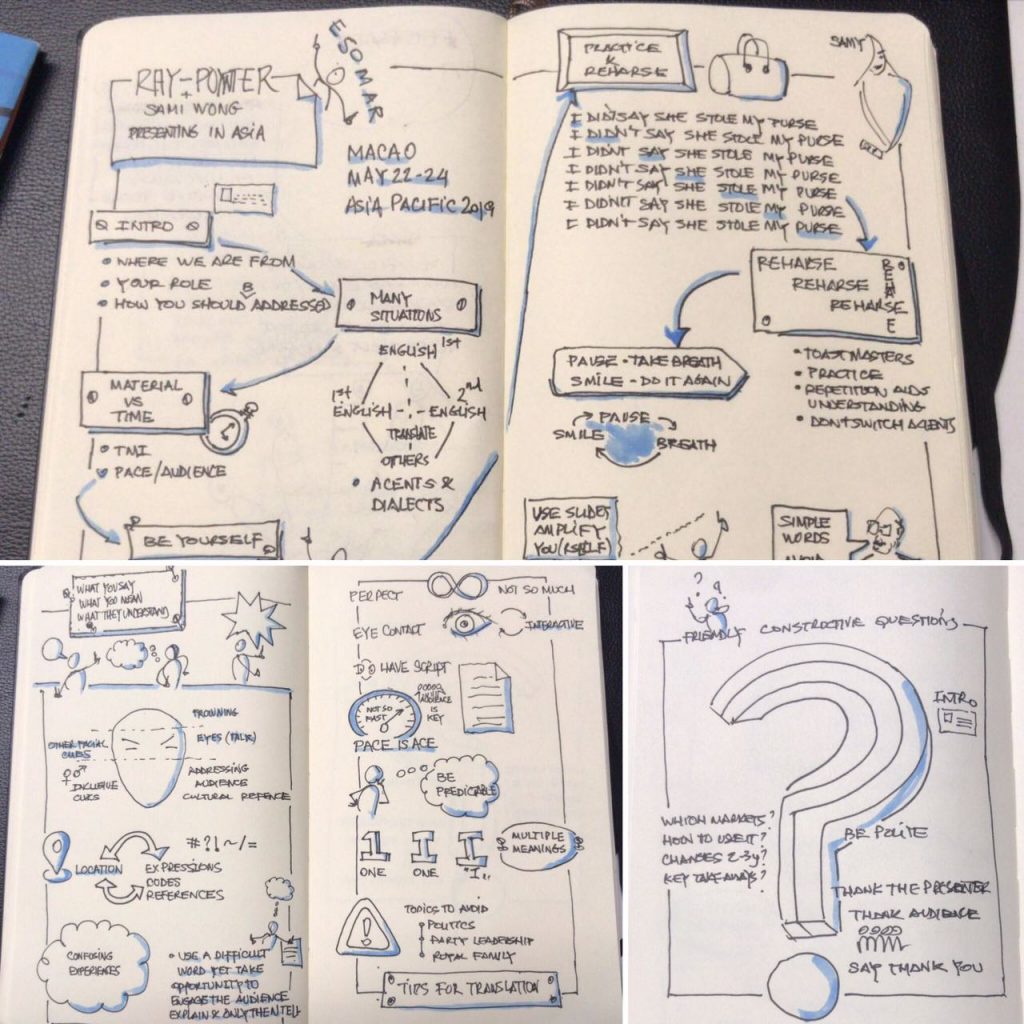 RAY-POYNTER
+
SAMI WONG
PRESENTING IN ASIA
ESOMAR
MACAO
MAY 22-24
ASIA PACIFIC 2019
INTRO
WHERE WE ARE FROM
YOUR ROLE
HOW YOU SHOULD B ADDRESSED
MANY
SITUATIONS
MATERIAL
VS
TIME
TMI
PACE/AUDIENCE
ENGLISH 1st
1st ENGLISH
2nd ENGLISH
TRANSLATE
OTHERS
ACENTS &
DIALECTS
BE YOURSELF
PRACTICE
&
REHARSE
SAMY
I DIDN'T SAY SHE STOLE MY PURSE
I DIDN'T SAY SHE STOLE MY PURSE
I DIDN'T SAY SHE STOLE MY PURSE
I DIDN'T SAY SHE STOLE MY PURSE
I DIDN'T SAY SHE STOLE MY PURSE
I DIDN'T SAY SHE STOLE MY PURSE
I DIDN'T SAY SHE STOLE MY PURSE
REHARSE
REHARSE
REHARSE
PAUSE - TAKE BREATH
SMILE - DO IT AGAIN
PAUSE
SMILE
BREATH
TOASTMASTERS
PRACTICE
REPETITION AIDS
UNDERSTANDING
DON'T SWITCH ACENTS
USE SLIDES
AMPLIFY
YOU/RSELF
SIMPLE
WORDS
AVOID
WHAT YOU SAY
WHAT YOU MEAN
WHAT THEY UNDERSTAND
FROWNING
EYES (TALK)
OTHER FACIAL
CUES
INCLUSIVE
CUES
ADDRESSING
AUDIENCE
CULTURAL REFENCE
#?!~/=
LOCATION
EXPRESSIONS
CODES
REFERENCES
CONFUSING
EXPERIENCES
USE A DIFFICULT
WORD YET TAKE
OPPORTUNITY TO
ENGAGE THE AUDIENCE
EXPLAIN & ONLY THEN TELL
PERFECT
NOT SO MUCH
EYE CONTACT
INTERACTIVE
DO HAVE SCRIPT
NOT SO
FAST
AUDIENCE
IS
KEY
PACE IS ACE
BE
PREDICABLE
1 I I
ONE ONE "I"
MULTIPLE
MEANINGS
!
TOPICS TO AVOID
POLITICS
PARTY LEADERSHIP
ROYAL FAMILY
TIPS FOR TRANSLATION
? ?
FRIENDLY CONSTRUCTIVE QUESTIONS
?
INTRO
WHICH MARKETS?
HOW TO USE IT?
CHANGES 2-3y?
KEY TAKE AWAYS?
BE POLITE
THANK THE PRESENTER
THANK AUDIENCE
SAY THANK YOU